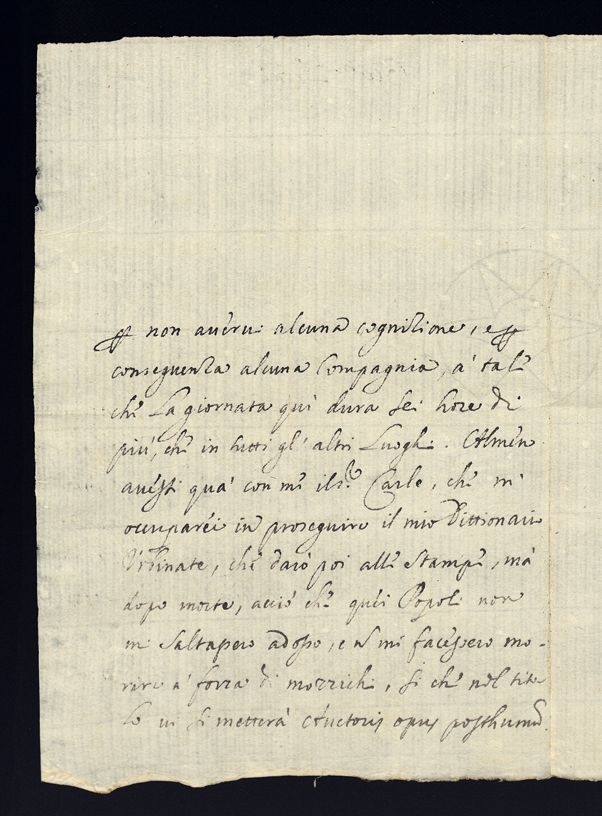 non avervi alcuna cognitione, e
conseguenza alcuna Compagnia, à tal
che La giornata quì dura sei hore di
più, che in tutti gl' altri Luoghi. Almen
avessi quà con me il Sr. Carle, che m'
occuparei in proseguire il mio Dittionario
Urbinate, che darò poi alle Stampe, mà
dopo morte, acciò che quei Popoli non
mi saltassero adosso, e mi facessero mo-
rire à forza di mozzichi, si che nel tito
lo vi si metterà Auctoris opus posthumum